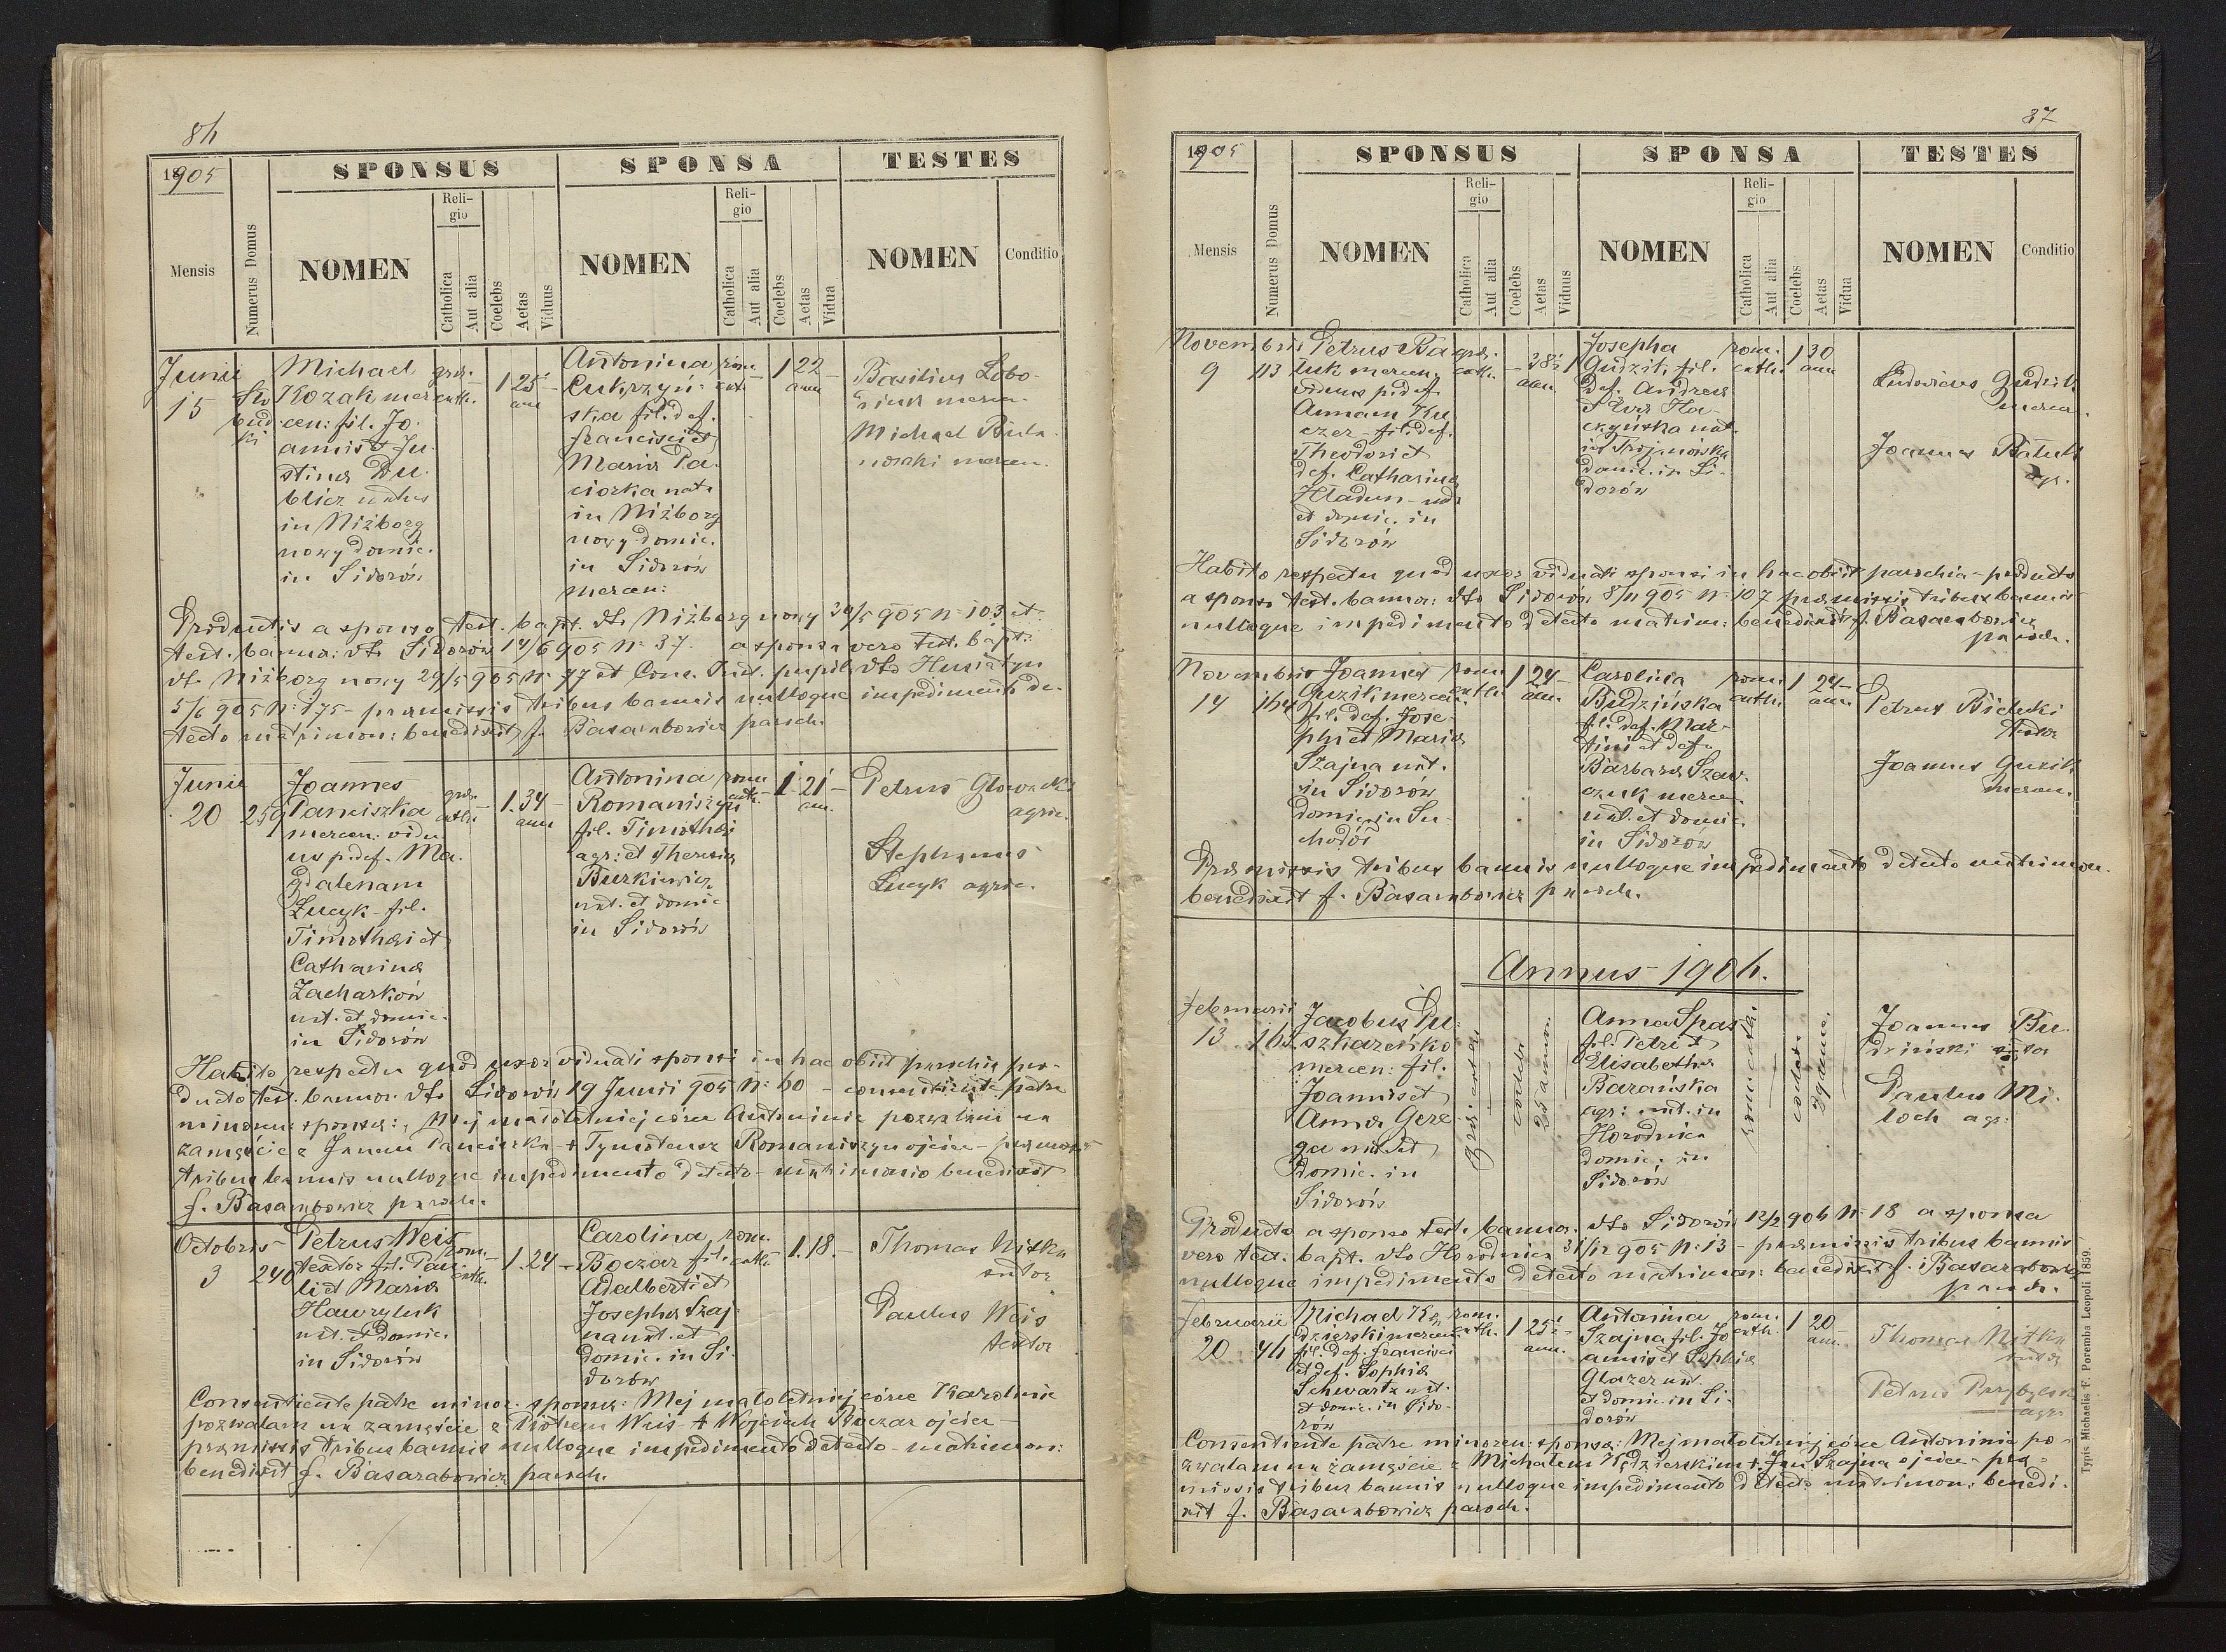 86
1905
SPONSUS
SPONSA
TESTES
Mensis
Numerus Domus
NOMEN
Reli-
gio
Catholica
Aut alia
Coelebs
Aetas
Viduus
NOMEN
Reli-
gio
Catholica
Aut alia
Coelebs
Aetas
Vidua
NOMEN
Conditio
Junii
15
Michael
Kozak mer
cen: fil. Jo
annis et Ju
stinae Du
blicz natus
in Niżborg
nowy domic.
in Sidorów
gr.
cath.
1 25
ann
Antonina
Cukrzyń
ska fil. def.
Francisci et
Mariae Pa
ciorka nat.
in Niżborg
nowy domic.
in Sidorów
mercen:
rom.
cath.
1 22
ann
Basilius Lobo-
mercen.
Michael
mercen.
Productis a sponso test. bapt. dto Niżborg nowy 30/5 905 N: 103 et
test. bannor: dto Sidorów 14/6 905 N: 37. a sponsa vero test. bapt:
dto Niżborg nowy 29/5 905 N: 77 et Cons. Jud. pupil. dto Husiatyn
5/6 905 N: 175 - praemissis tribus bannis nulloque impedimento de-
tecto matrimon: benedixit f. Basarabowicz paroch.
Junii
20
259
Joannes
Panciszka
mercen: vidu
us p. def. Ma
gdalenam
Łucyk - fil.
Timothei et
Catharinae
Zacharków
nat. et domic.
in Sidorów
gr.
cath.
1. 34
ann
Antonina
Romaniszyn
fil. Timothei
agr: et Theresiae
Burkiewicz
nat. et domic
in Sidorów
rom
cath.
1. 21
an.
Petrus Głowacki
agric.
Stephanus
Łucyk agric.
Habito respectu quod uxor viduati sponsi in hac obiit parochia pro-
ducto test. bannor. dto Sidorów 19 Junii 905 N: 60 - consentiente patre
minoren: sponsae: Mej małoletniej córce Antoninie pozwalam na
zamęście z Janem Panciszka - + Tymoteusz Romaniszyn ojciec - praemissis
tribus bannis nulloque impedimento detecto - matrimonio benedixit
f. Basarabowicz paroch.
Octobris
3
240
Petrus Weis
textor fil. Pau
li et Mariae
Hawryluk
nat. et domic.
in Sidorów
rom.
cath.
1. 24
Carolina
Boczar fil.
Adalberti et
Josephae Szaj
na nat. et
domic. in Si
dorów
rom.
cath.
1. 18.
Thomas Nitka
sutor
Paulus Weis
textor
Consentiente patre minor. sponsae: Mej małoletniej córce Karolinie
pozwalam na zamęście z Piotrem Weis - + Wojciech Boczar ojciec -
praemissis tribus bannis nulloque impedimento detecto - matrimon:
benedixit f. Basarabowicz paroch.
87
1905
SPONSUS
SPONSA
TESTES
Mensis
Numerus Domus
NOMEN
Reli-
gio
Catholica
Aut alia
Coelebs
Aetas
Viduus
NOMEN
Reli-
gio
Catholica
Aut alia
Coelebs
Aetas
Vidua
NOMEN
Conditio
Novembris
9
113
Petrus Ba
tuk mercen.
viduus p. def.
Annam Ku
czer - fil. def.
Theodori et
def. Catharinae
Hładun - nat
et domic. in
Sidorów
gr.
cath.
38
ann.
1
Josepha
Gudzik fil.
def. Andreae
et Evae Ha-
czyńska nat.
in Trojanówka
domic. in Si-
dorów
rom.
cath.
1 30
ann
Ludovicus Gudzik
mercen.
Joannes Batuk
agr.
Habito respectu quod uxor viduati sponsi in hac obiit parochia - producto
a sponso test. bannor: dto Sidorów 8/11 905 N: 107 praemissis tribus bannis
nulloque impedimento detecto matrim: benedixit f. Basarabowicz
paroch.
Novembris
14
164
Joannes
Guzik mercen.
fil. def. Jose
phi et Mariae
Szajna nat.
in Sidorów
domic. in Su
chodół
rom.
cath.
1 24
ann.
Carolina
Budzińska
fil. def. Mar-
tini et def.
Barbarae Szew
czuk mercen.
nat. et domic.
in Sidorów
rom.
cath.
1 24
ann
Petrus Bielecki
textor
Joannes Guzik
mercen.
Praemissis tribus bannis nulloque impedimento detecto matrimon.
benedixit f. Basarabowicz paroch.
Annus 1906.
Februarii
13
165
Jacobus Pu
szkareńko
mercen: fil.
Joannis et
Annae Gere
ga nat. et
domic. in
Sidorów
coelebs
25 annor.
Anna Spas
fil. Petri et
Elisabethae
Barańska
agr: nat. in
Horodnica
domic. in
Sidorów
coelebs
Joannes Bu
dziński sutor
Paulus Mi
loch agr.
Producto a sponso test. bannor. dto Sidorów 12/2 906 N: 18 a sponsa
vero test. bapt. dto Horodnica 31/12 905 N: 13 - praemissis tribus bannis
nulloque impedimento detecto matrimon: benedixit f. Basarabowicz
paroch.
Februarii
20
46
Michael Kę
dzierski mercen
fil. def. Francisci
et def. Sophiae
Schwartz nat.
et domic. in Sido-
rów
rom.
cath.
1 25
ann.
Antonina
Szajna fil. Jo
annis et Sophiae
Glazer nat.
et domic. in Si-
dorów
rom.
cath.
1 20
ann.
Thomas Nitka
sutor
Petrus
agr.
Consentiente patre minoren: sponsae: Mej małoletniej córce Antoninie po-
zwalam na zamęście z Michałem Kędzierskim + Jan Szajna ojciec - prae-
missis tribus bannis nulloque impedimento detecto matrimon: benedi-
xit f. Basarabowicz paroch.
Typis Michaelis F. Poremba Leopoli 1859.